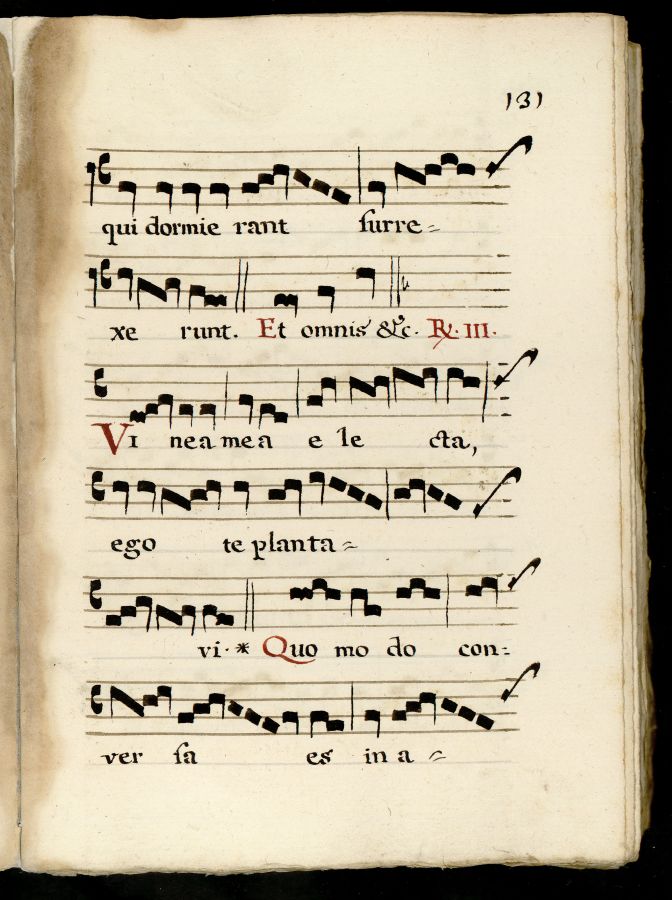 131
qui dormie rant ſurre=
xe runt. Et omnis &c. ℟. III.
VI nea mea e le cta,
ego te planta=
vi. * Quo mo do con=
ver ſa es in a =